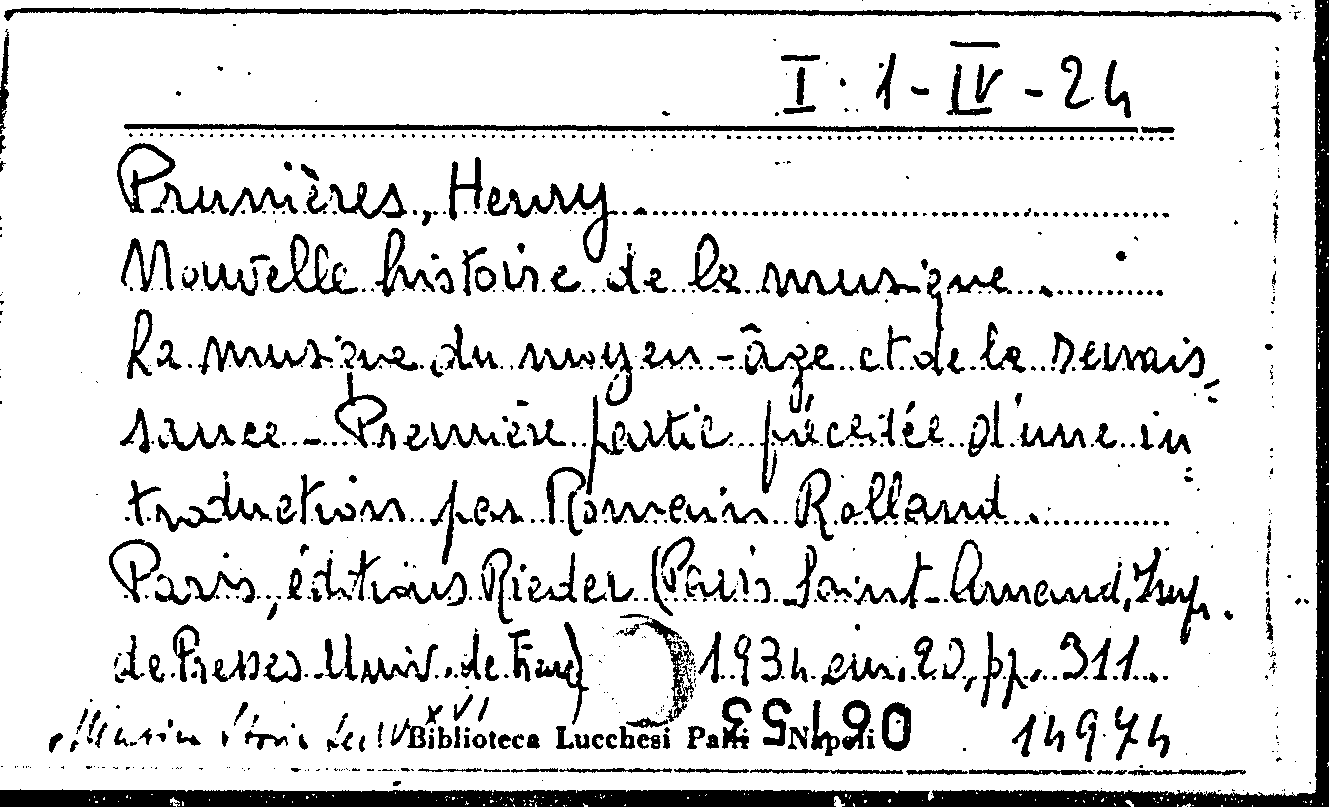 I. 1-IV-24
Prunières, Henry.
Nouvelle histoire de la musique.
La musique du moyen-âge et de la renais=
sance - Première partie précédée d'une in=
troduction par Romain Rolland.
Paris, éditions Rieder (Paris Saint-Amand, Imp.
de Presses Univ. de Franc) 1934 cm. 20, pp. 311.
Musica Storia Sec IV XVI
Biblioteca Lucchesi Palli - Napoli 14974